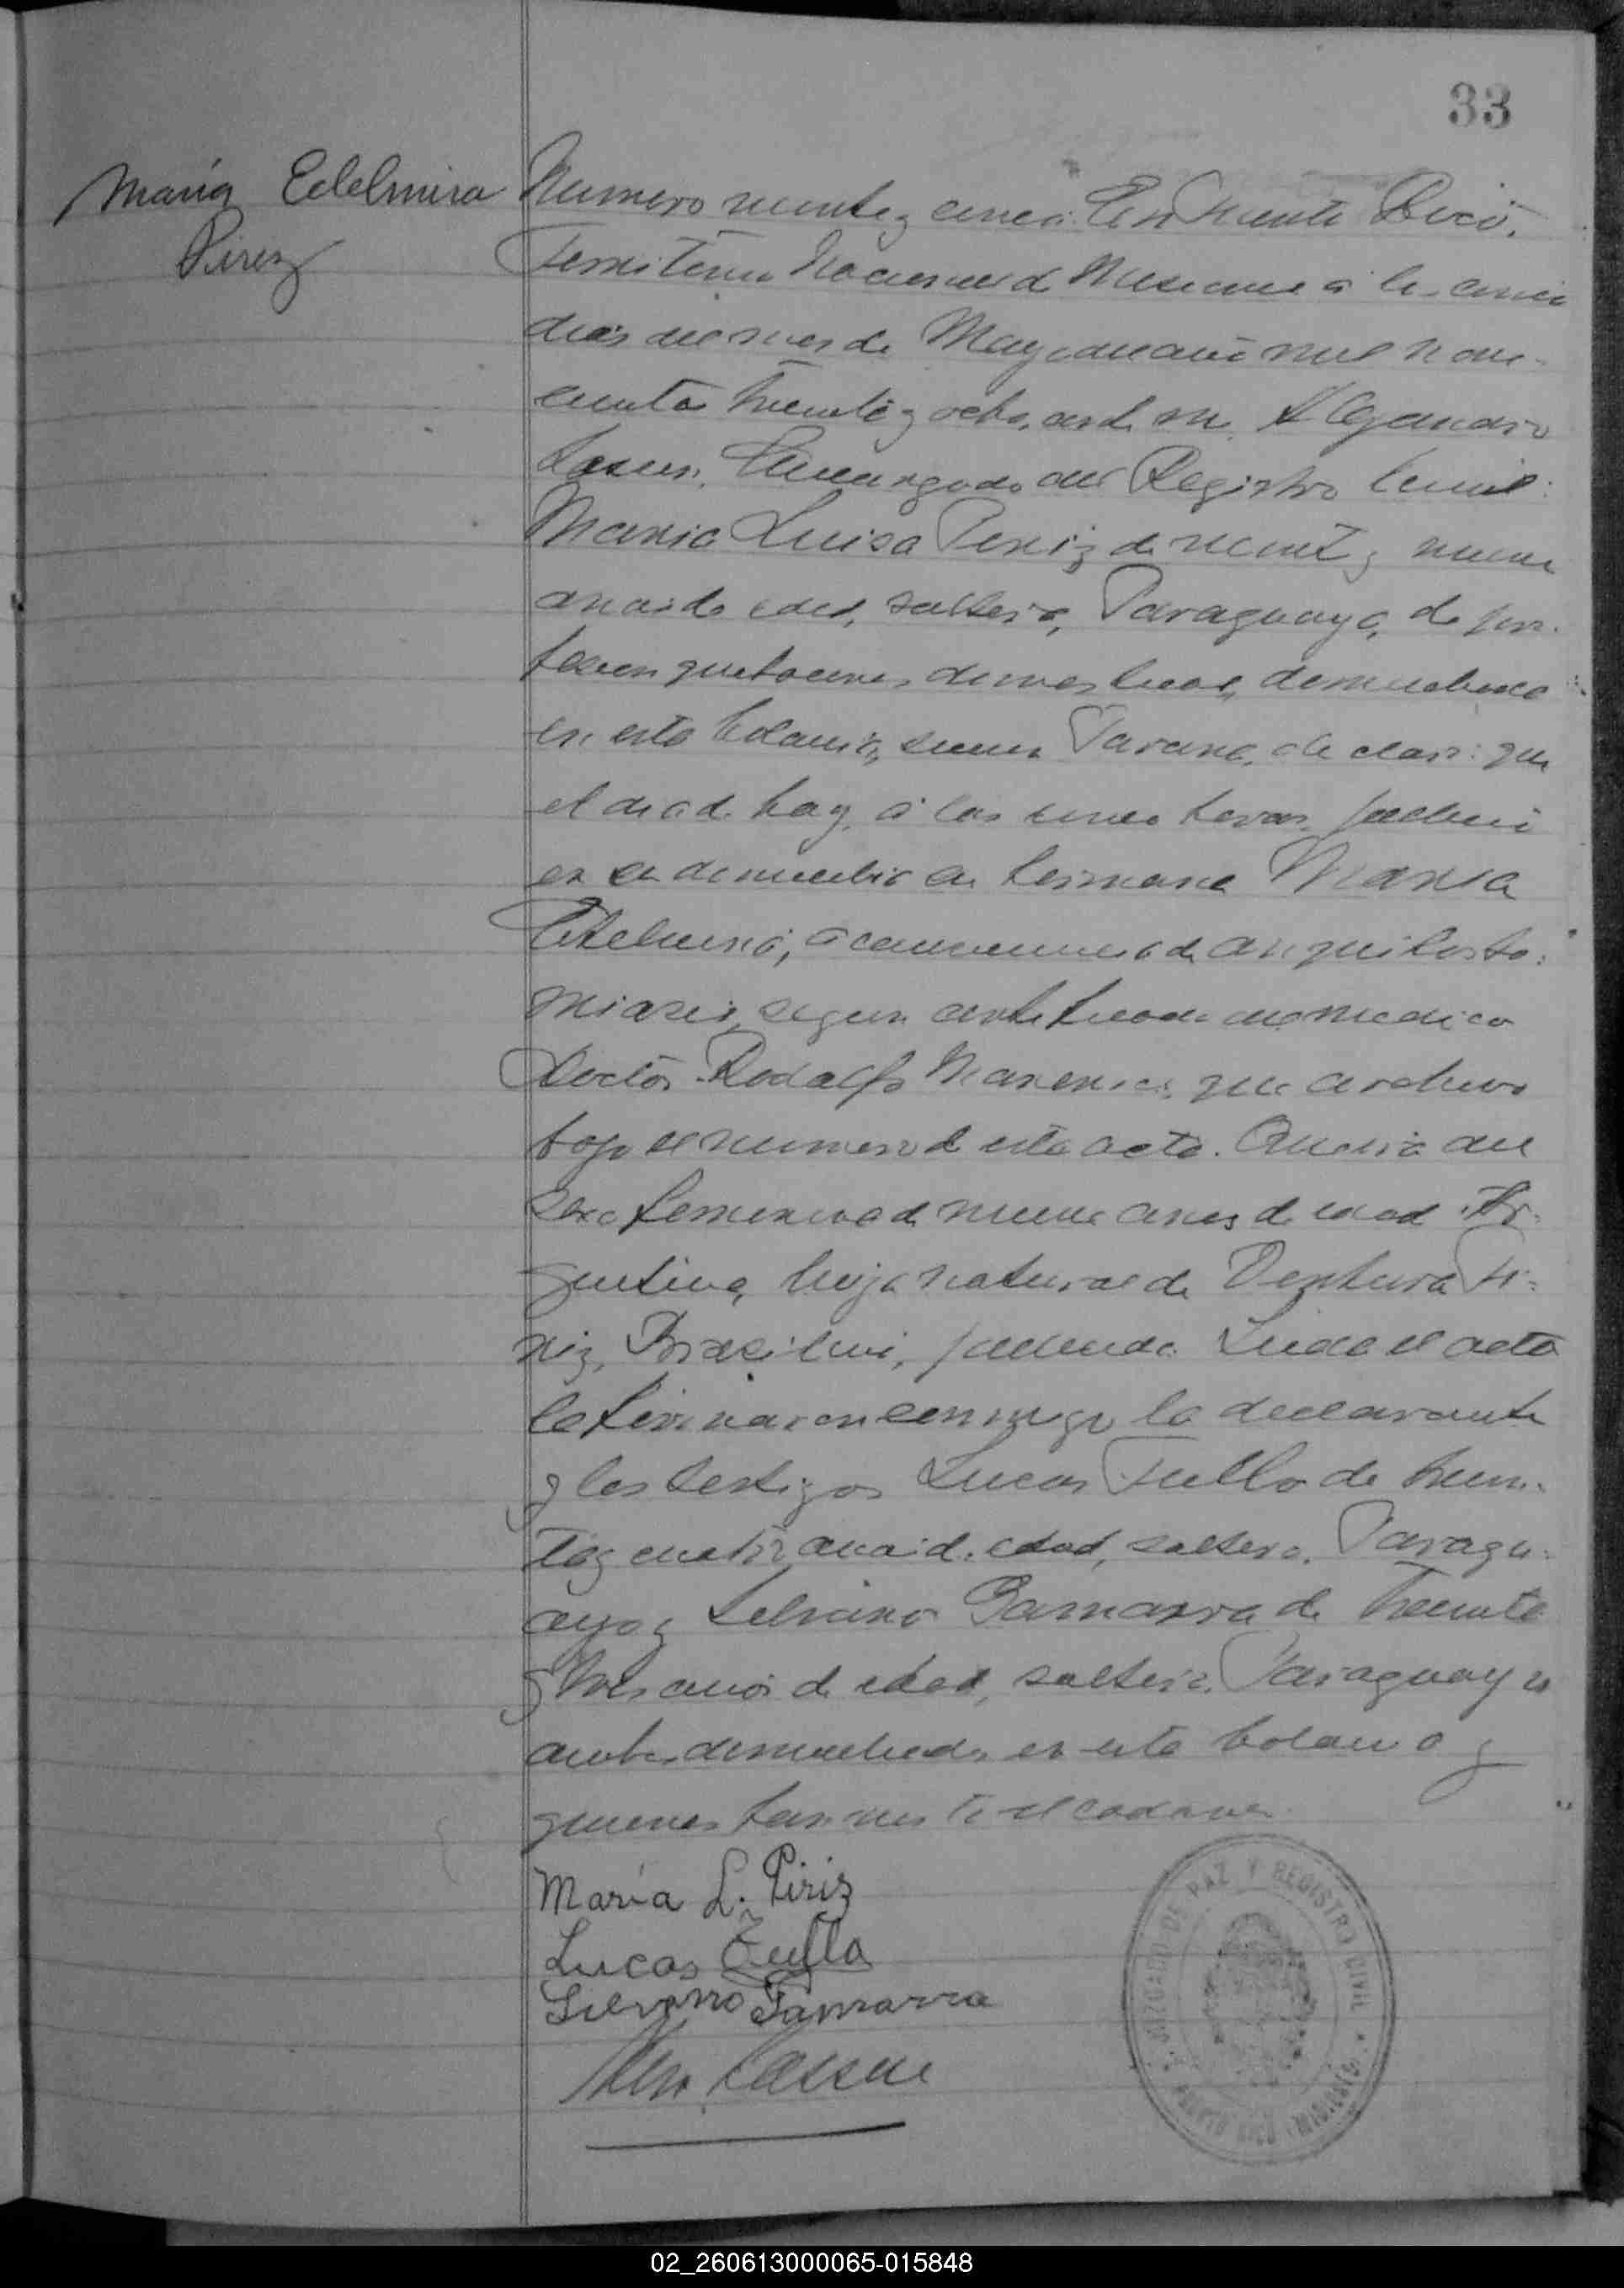 33
María Edelmira
Pirez
Numero veinte y cinco: En Puerto Rico,
Territorio Nacional de Misiones a los cinco
dias del mes de Mayo del año mil nove-
cientos treinta y ocho, ante mi Alejandro
Encargado del Registro Civil:
Maria Luisa Periz de veinte y nueve
años de edad, soltera, Paraguaya, de pro-
fesion quehaceres domesticos, domiciliada
en esta Colonia, Parana, declaró: que
el dia de hoy, a las cinco horas, fallecio
en su domicilio su hermana Maria
Etelmira, a consecuencia de anquilosto-
miasis, segun certificado del medico
Doctor Rodolfo que archivo
bajo el numero de esta acta. Que era del
sexo femenino de nueve años de edad, Ar-
gentina, hija natural de Ventura Pi-
riz, Brasilera, fallecida. Leida el acta
la firmaron conmigo la declarante
y los testigos Lucas Tullo de trein-
ta y cuatro años de edad, soltero, Paragu-
ayo y Silvano Gamarra de treinta
y tres años de edad, soltero, Paraguayo
ambos domiciliados en esta Colonia y
quienes han visto el cadaver.
María L. Piriz
Lucas Tullo
Silvano Gamarra
JUZGADO DE PAZ Y REGISTRO CIVIL
PUERTO RICO (MISIONES)
02_260613000065-015848